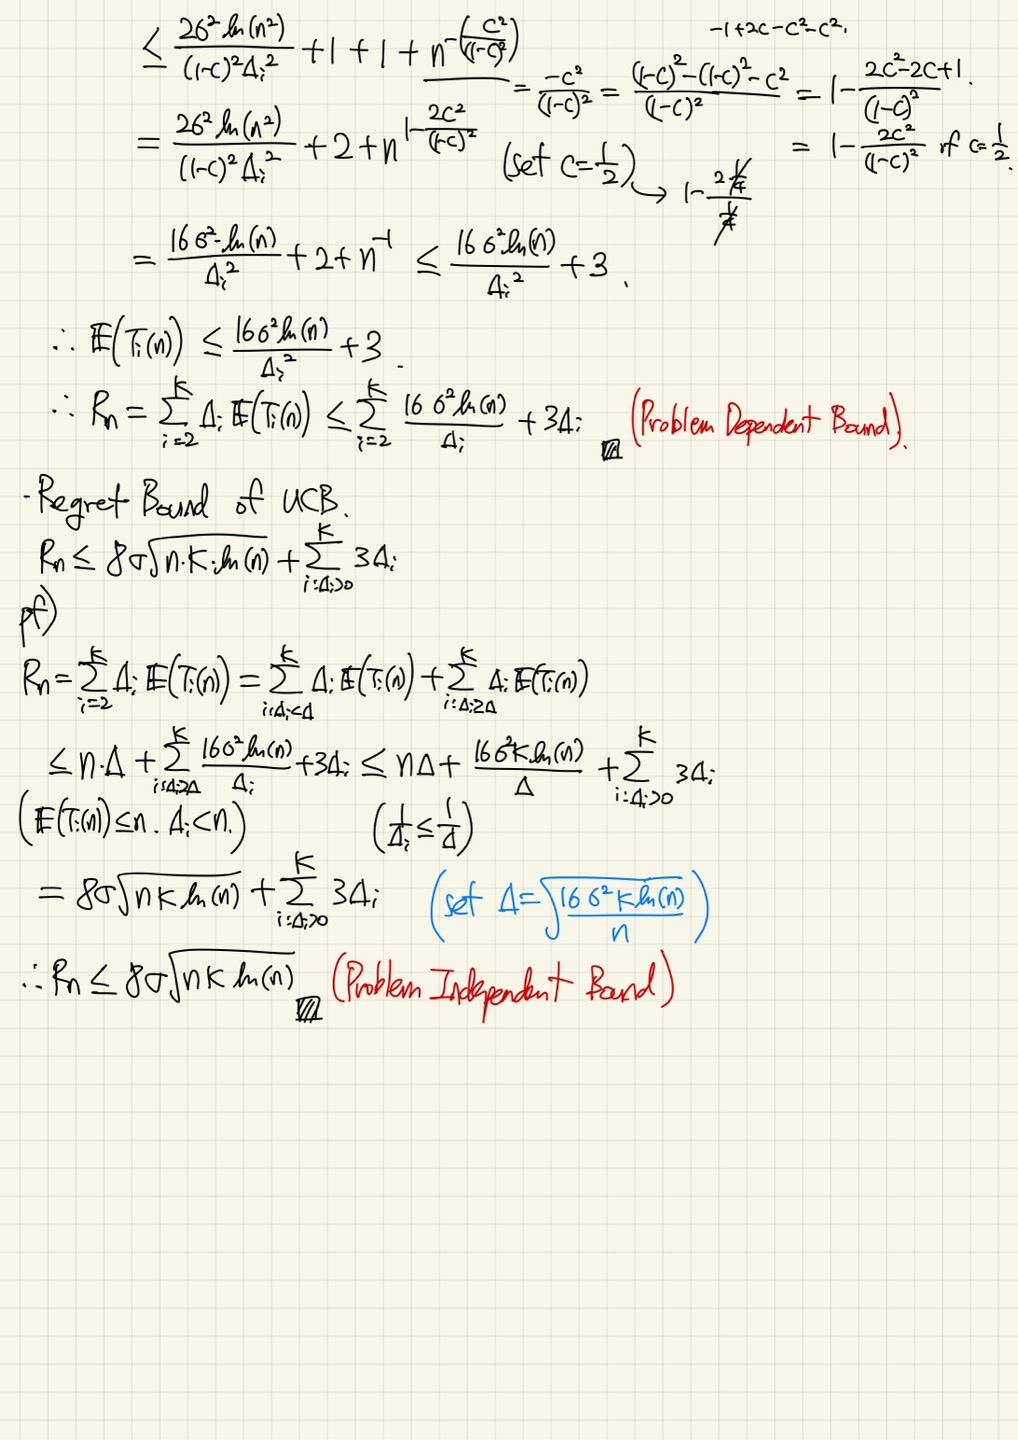 -1+2c-c²-c².
≤ 2σ² ln(n²) / (1-c)²Δᵢ² + 1 + 1 + n^{-(c²/(1-c)²)} = -c²/(1-c)² = ((1-c)²-(1-c)²-c²)/(1-c)² = 1 - (2c²-2c+1)/(1-c)².
= 2σ² ln(n²) / (1-c)²Δᵢ² + 2 + n^{1 - 2c²/(1-c)²} (set c=1/2) → 1 - (2·1/4)/(1/4) = 1 - 2c²/(1-c)² if c=1/2.
= 16σ²·ln(n)/Δᵢ² + 2 + n⁻¹ ≤ 16σ²ln(n)/Δᵢ² + 3.
∴ E(Tᵢ(n)) ≤ 16σ²ln(n)/Δᵢ² + 3.
∴ Rₙ = Σ_{i=2}^{K} Δᵢ E(Tᵢ(n)) ≤ Σ_{i=2}^{K} 16σ²ln(n)/Δᵢ + 3Δᵢ (Problem Dependent Bound).
- Regret Bound of UCB.
Rₙ ≤ 8σ√(n·K·ln(n)) + Σ_{i:Δᵢ>0}^{K} 3Δᵢ
pf)
Rₙ = Σ_{i=2}^{K} Δᵢ E(Tᵢ(n)) = Σ_{i:Δᵢ<Δ}^{K} Δᵢ E(Tᵢ(n)) + Σ_{i:Δᵢ≥Δ}^{K} Δᵢ E(Tᵢ(n))
≤ n·Δ + Σ_{i:Δᵢ≥Δ}^{K} 16σ²ln(n)/Δᵢ + 3Δᵢ ≤ nΔ + 16σ²K·ln(n)/Δ + Σ_{i:Δᵢ>0}^{K} 3Δᵢ
(E(Tᵢ(n)) ≤ n. Δᵢ<n.) (1/Δᵢ ≤ 1/Δ)
= 8σ√(nK ln(n)) + Σ_{i:Δᵢ>0}^{K} 3Δᵢ (set Δ=√(16σ²K ln(n)/n))
∴ Rₙ ≤ 8σ√(nK ln(n)) (Problem Independent Bound)